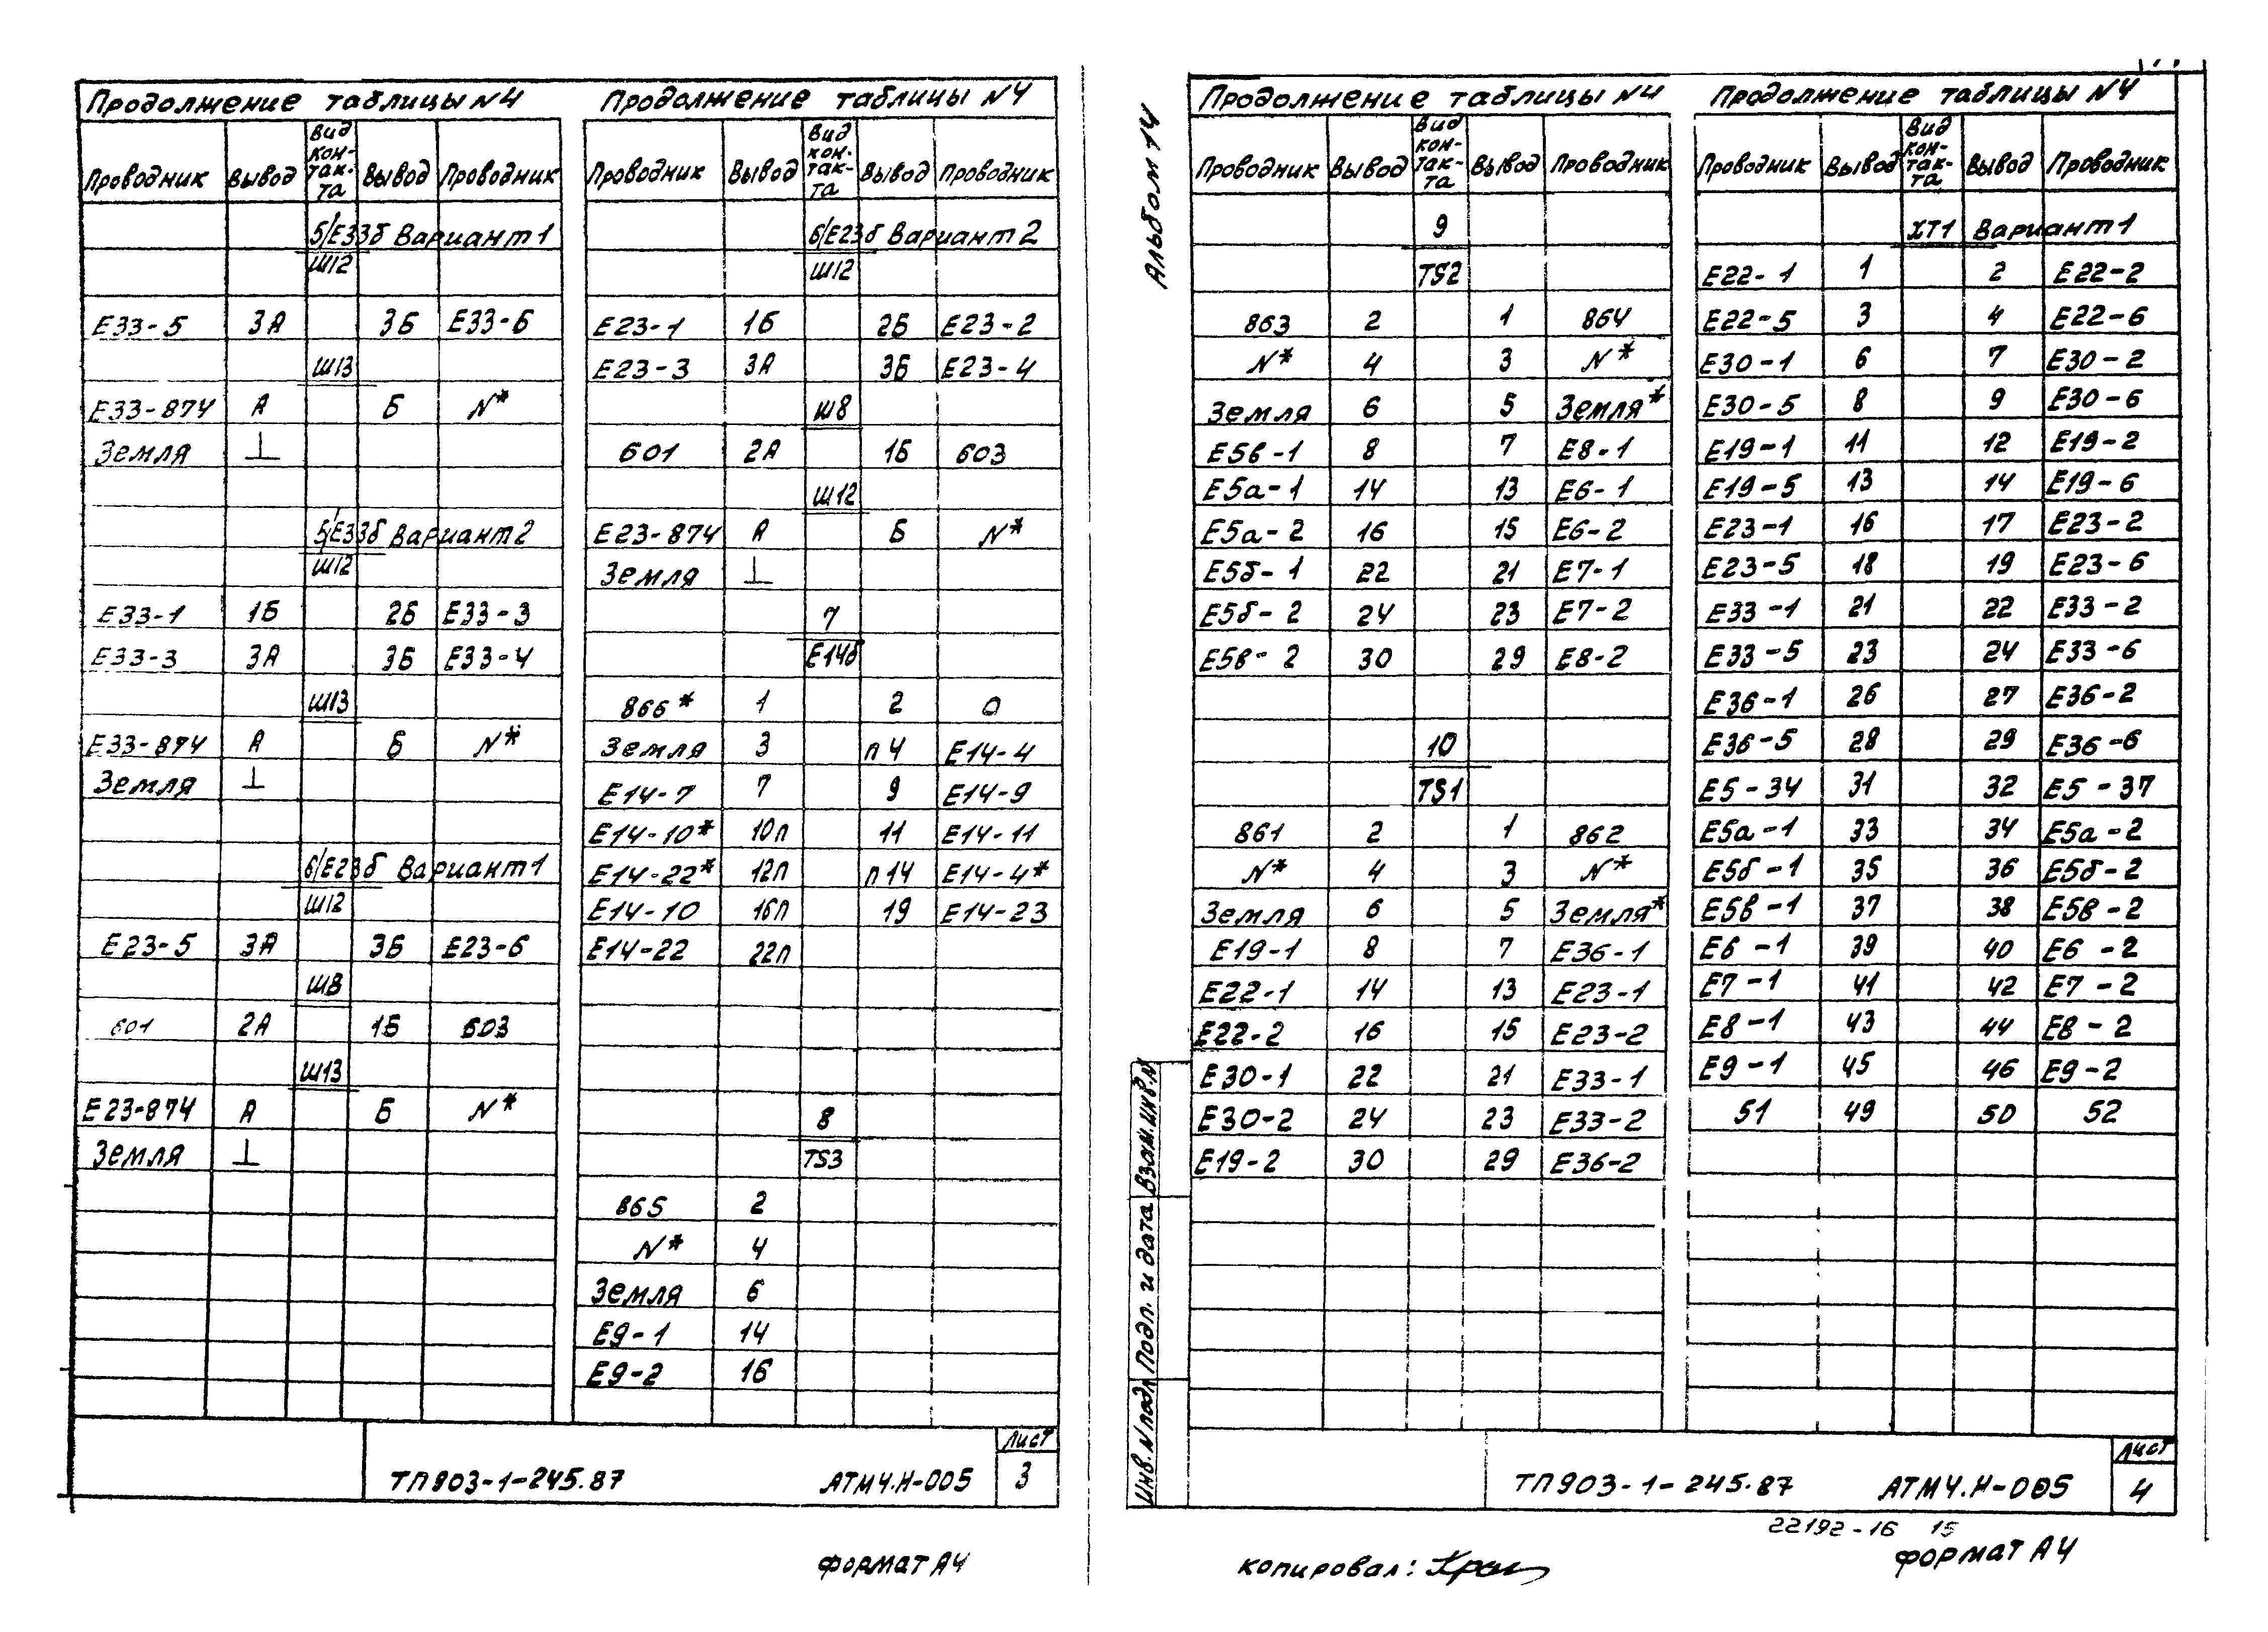 Продолжение таблицы №4
Проводник Вывод Вид кон-так-та Вывод Проводник
5/Е33б Вариант 1
Ш12
Е33-5 3А 3Б Е33-6
Ш13
Е33-874 А Б N*
Земля ⊥
5/Е33б Вариант 2
Ш12
Е33-1 1Б 2Б Е33-3
Е33-3 3А 3Б Е33-4
Ш13
Е33-874 А Б N*
Земля ⊥
6/Е23б Вариант 1
Ш12
Е23-5 3А 3Б Е23-6
Ш8
601 2А 1Б 603
Ш13
Е23-874 А Б N*
Земля ⊥
Продолжение таблицы №4
Проводник Вывод Вид кон-так-та Вывод Проводник
6/Е23б Вариант 2
Ш12
Е23-1 1Б 2Б Е23-2
Е23-3 3А 3Б Е23-4
Ш8
601 2А 1Б 603
Ш12
Е23-874 А Б N*
Земля ⊥
7
Е14б
866* 1 2 0
Земля 3 п4 Е14-4
Е14-7 7 9 Е14-9
Е14-10* 10п 11 Е14-11
Е14-22* 12п п14 Е14-4*
Е14-10 16п 19 Е14-23
Е14-22 22п
8
TS3
865 2
N* 4
Земля 6
Е9-1 14
Е9-2 16
ТП903-1-245.87 АТМ4.Н-005 Лист 3
Формат А4
Альбом 14
Продолжение таблицы №4
Проводник Вывод Вид кон-так-та Вывод Проводник
9
TS2
863 2 1 864
N* 4 3 N*
Земля 6 5 Земля*
Е5в-1 8 7 Е8-1
Е5а-1 14 13 Е6-1
Е5а-2 16 15 Е6-2
Е5б-1 22 21 Е7-1
Е5б-2 24 23 Е7-2
Е5в-2 30 29 Е8-2
10
TS1
861 2 1 862
N* 4 3 N*
Земля 6 5 Земля*
Е19-1 8 7 Е36-1
Е22-1 14 13 Е23-1
Е22-2 16 15 Е23-2
Е30-1 22 21 Е33-1
Е30-2 24 23 Е33-2
Е19-2 30 29 Е36-2
Продолжение таблицы №4
Проводник Вывод Вид кон-так-та Вывод Проводник
ХТ1 Вариант 1
Е22-1 1 2 Е22-2
Е22-5 3 4 Е22-6
Е30-1 6 7 Е30-2
Е30-5 8 9 Е30-6
Е19-1 11 12 Е19-2
Е19-5 13 14 Е19-6
Е23-1 16 17 Е23-2
Е23-5 18 19 Е23-6
Е33-1 21 22 Е33-2
Е33-5 23 24 Е33-6
Е36-1 26 27 Е36-2
Е36-5 28 29 Е36-6
Е5-34 31 32 Е5-37
Е5а-1 33 34 Е5а-2
Е5б-1 35 36 Е5б-2
Е5в-1 37 38 Е5в-2
Е6-1 39 40 Е6-2
Е7-1 41 42 Е7-2
Е8-1 43 44 Е8-2
Е9-1 45 46 Е9-2
51 49 50 52
Инв. N подл. Подп. и дата Взам. инв. N
ТП903-1-245.87 АТМ4.Н-005 Лист 4
22192-16 15
Копировал: Формат А4